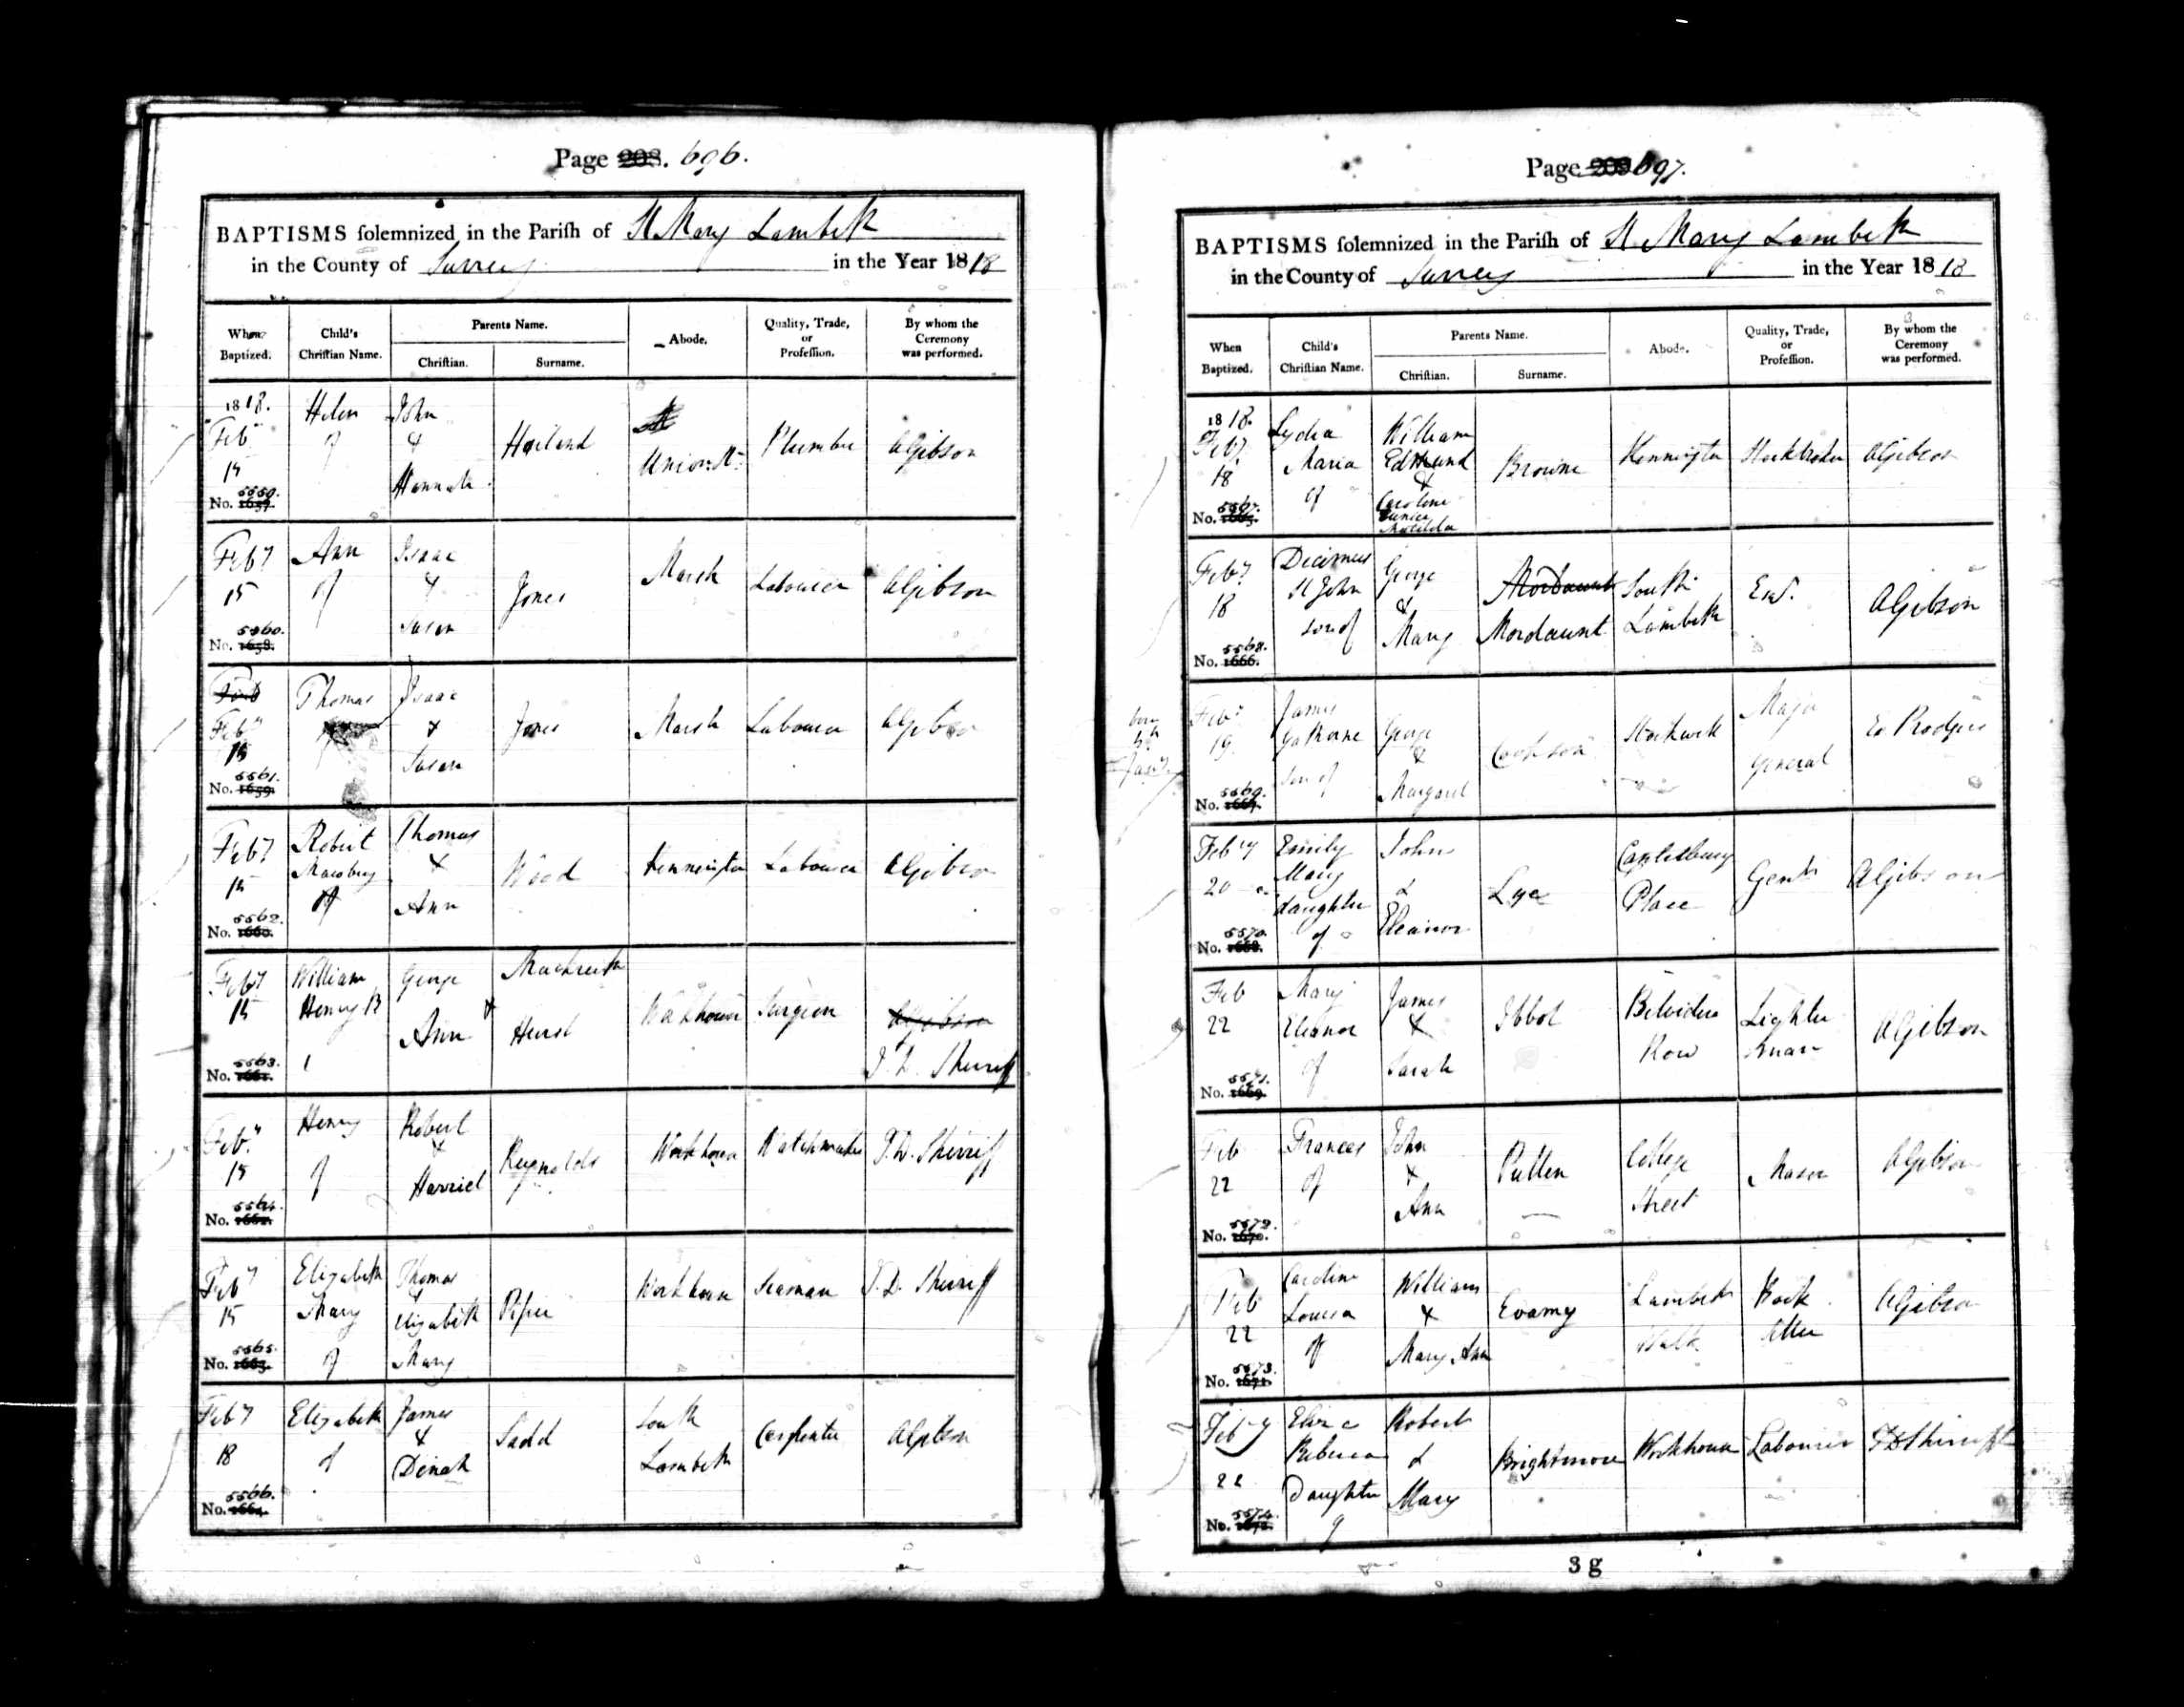 Page 208. 696.
BAPTISMS solemnized in the Parish of St Mary Lambeth
in the County of Surrey in the Year 1818
When Baptized.
Child's Christian Name.
Parents Name.
Christian.
Surname.
Abode.
Quality, Trade, or Profession.
By whom the Ceremony was performed.
1818.
Feby
15
No. 5559. 1657.
Helen
of
John
&
Hannah
Union St
Plumber
A Gibson
Feby
15
No. 5560. 1658.
Ann
of
Isaac
&
Susan
Jones
Marsh
Labourer
A Gibson
Feb
Feby
15
No. 5561. 1659.
Thomas
Isaac
&
Susan
Jones
Marsh
Labourer
A Gibson
Feby
15
No. 5562. 1660.
Robert
of
Thomas
&
Ann
Wood
Kennington
Labourer
A Gibson
Feby
15
No. 5563. 1661.
William
Henry B
George
&
Ann
Hurst
Workhouse
Surgeon
A Gibson
T. D. Shirreff
Feby
15
No. 5564. 1662.
Henry
of
Robert
&
Harriet
Reynolds
Workhouse
Watchmaker
T. D. Shirreff
Feby
15
No. 5565. 1663.
Elizabeth
Mary
of
Thomas
&
Elizabeth
Mary
Piper
Workhouse
Seaman
T. D. Shirreff
Feby
18
No. 5566. 1664.
Elizabeth
of
James
&
Dinah
Sadd
South
Lambeth
Carpenter
A Gibson
Page 209 697.
BAPTISMS solemnized in the Parish of St Mary Lambeth
in the County of Surrey in the Year 1818
When Baptized.
Child's Christian Name.
Parents Name.
Christian.
Surname.
Abode.
Quality, Trade, or Profession.
By whom the Ceremony was performed.
1818.
Feby
18
No. 5567. 1665.
Lydia
Maria
of
William
Edmund
&
Caroline
Eunice
Matilda
Browne
Kennington
Stockbroker
A Gibson
Feby
18
No. 5568. 1666.
Decimus
St John
son of
George
&
Mary
Mordaunt
Mordaunt
South
Lambeth
Esq.
A Gibson
born
5th
Jany
Feby
19
No. 5569. 1667.
James
Gathorne
son of
George
&
Margaret
Cookson
Stockwell
Major
General
Ed Prodgers
Feby
20
No. 5570. 1668.
Emily
Mary
daughter
of
John
&
Eleanor
Lye
Place
Gent
A Gibson
Feb
22
No. 5571. 1669.
Mary
Eleanor
of
James
&
Sarah
Ibbot
Belvidere
Row
Lighter
man
A Gibson
Feb
22
No. 5572. 1670.
Frances
of
John
&
Ann
Pullen
College
Street
Mason
A Gibson
Feb
22
No. 5573. 1671.
Caroline
Louisa
of
William
&
Mary Ann
Evamy
Lambeth
Walk
A Gibson
Feby
22
No. 5574. 1672.
Eliza
Rebecca
Daughter
of
Robert
&
Mary
Brightmore
Workhouse
Labourer
T D Shirreff
3 g